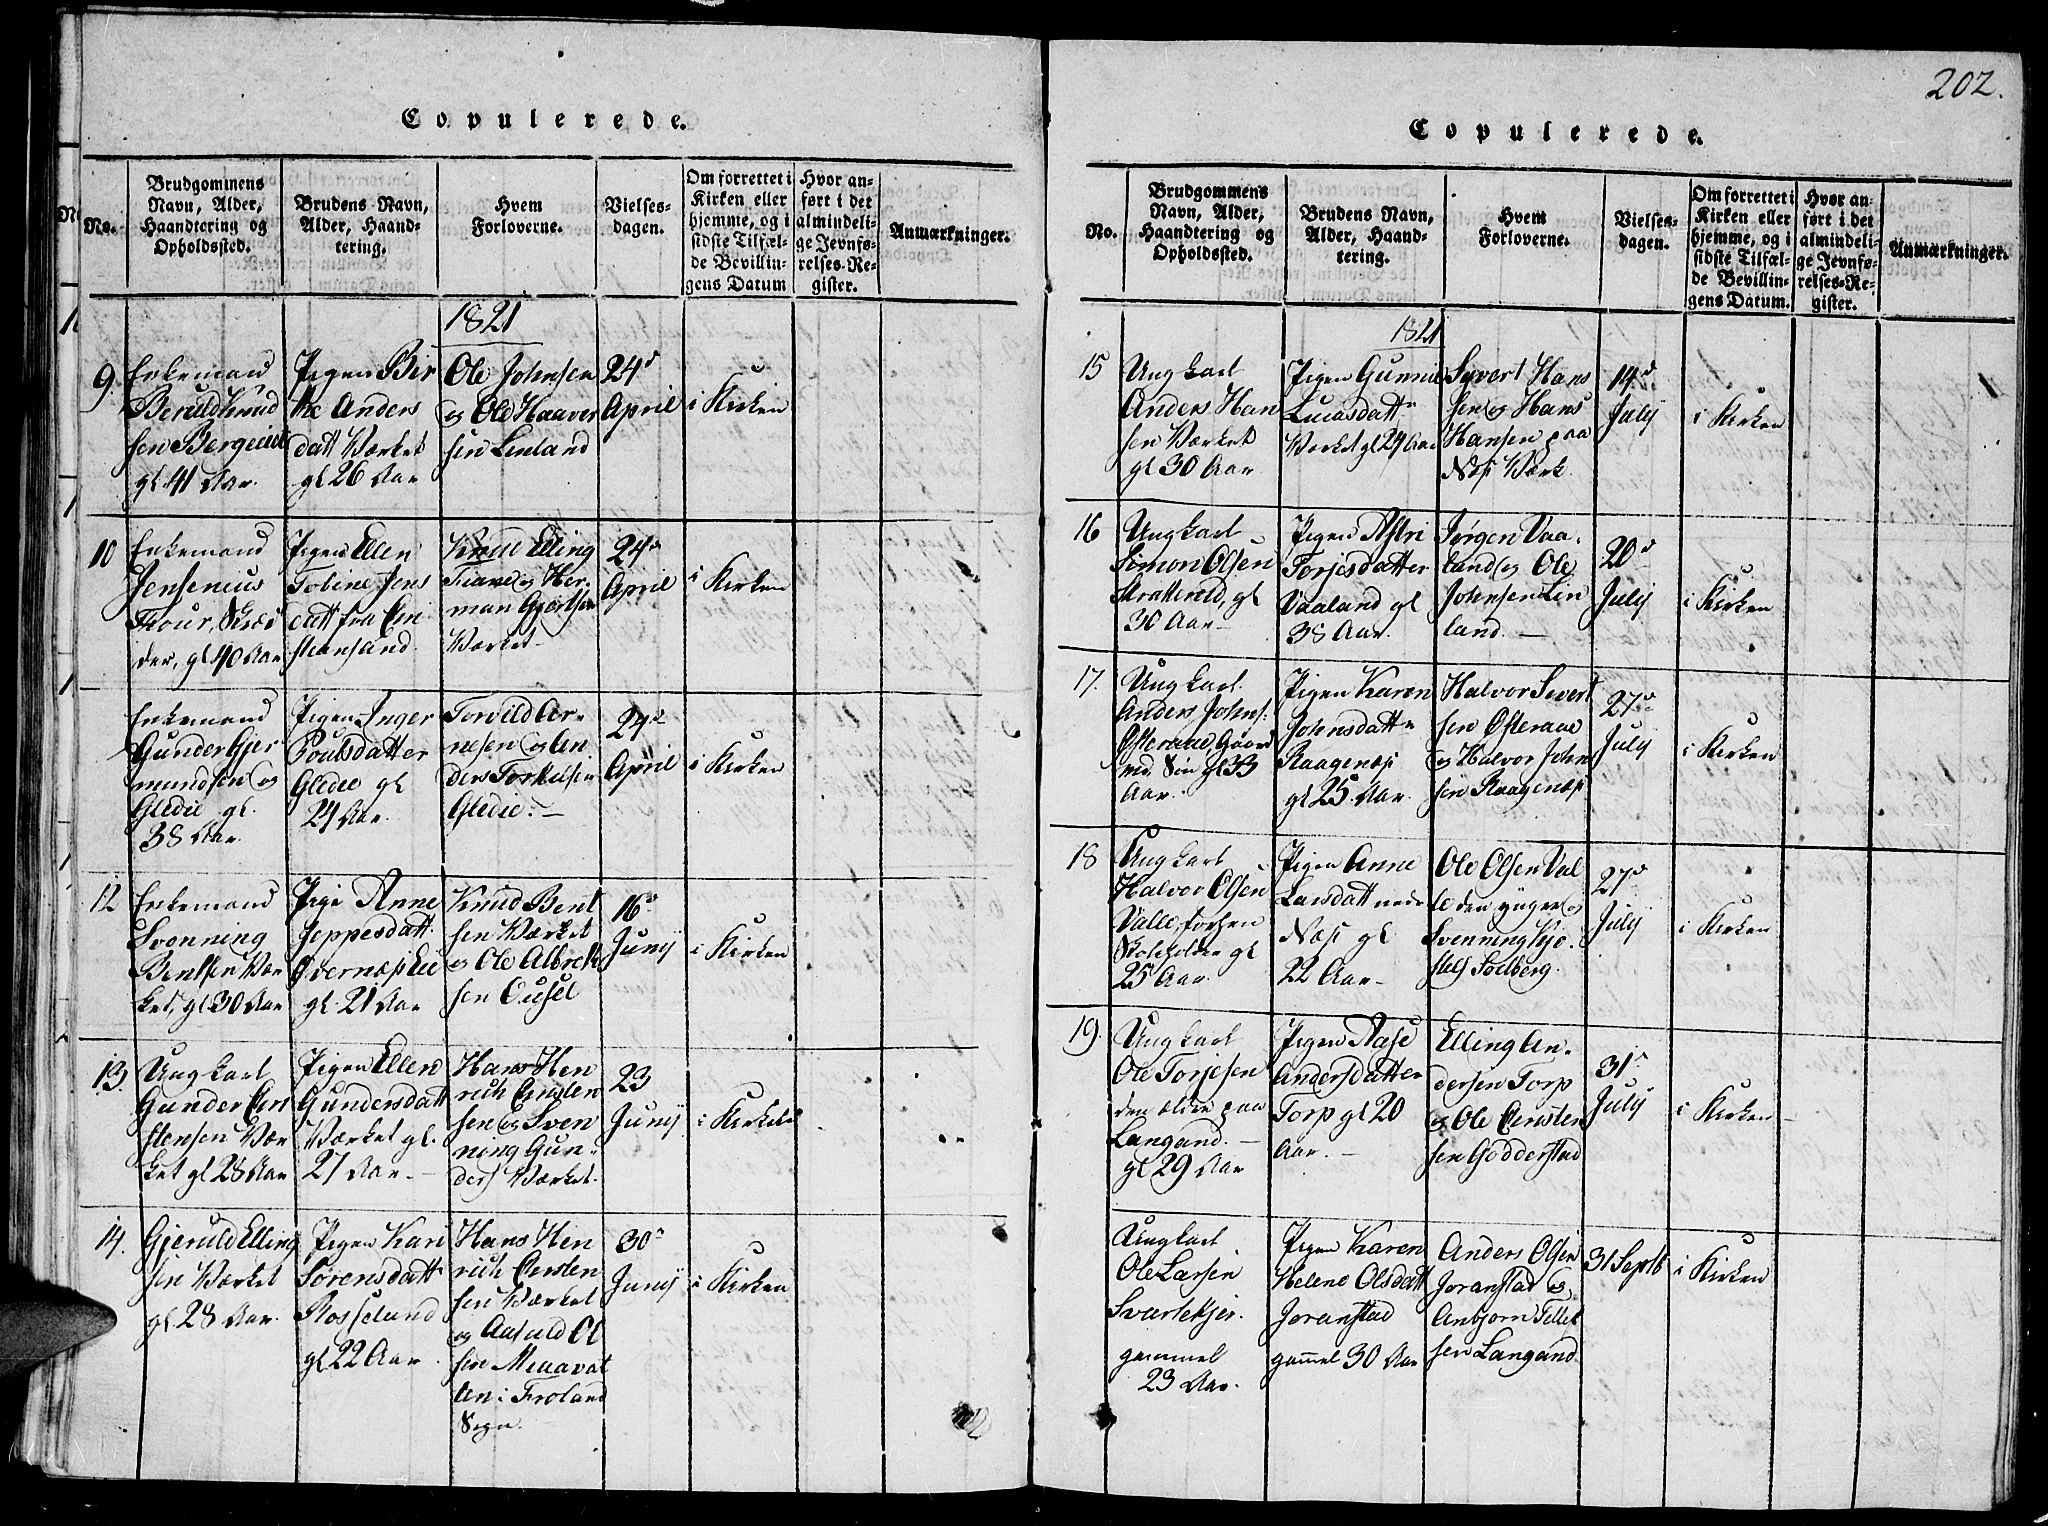 202.
Copulerede.
No.
Brudgommens
Navn, Alder,
Haandtering og
Opholdssted.
Brudens Navn,
Alder, Haand-
tering.
Hvem
Forloverne.
Vielses-
dagen.
Om forrettet i
Kirken eller
hjemme, og i
sidste Tilfæl-
de Bevillin-
gens Datum
Hvor an-
ført i det
almindeli-
ge Jevnfø-
relses-Re-
gister.
Anmærkninger.
1821
9.
Enkemand
Beruld Knud
sen
gl 41 Aar.
Pigen Bir
the Anders
datt Værket
gl 26 Aar
Ole Johnsen
og Ole Haaver
sen Linland
24d
April
i Kirken
10
Enkemand
Jensenius
der, gl 40 Aar
Pigen Ellen
Toline Jens
datt fra Cri
stiansand.
Knud Elling
og Her-
man Gjertsen
Værket
24d
April
i Kirken
Enkemand
Gunder Gjer
mundsen og
Gledie gl.
38 Aar.
Pigen Inger
Poulsdatter
Gledie gl
21 Aar.
Torvild Ar-
nesen og An
ders Torkelsen
Gledie.
24d
April
i Kirken
12
Enkemand
Svenning
Bentsen Vær
ket, gl 30 Aar
Pige Anne
Jeppesdatt.
Øvernæs
gl. 21 Aar
Knud Bent
sen Værket
og Ole Albrekt
sen Ousel
16d
Junij
i Kirken
13.
Ung Karl
Gunder Cri
stensen Vær
ket gl 28 Aar
Pigen Ellen
Gundersdatt
Værket gl.
27 Aar.
Hans Hen
rich Cristen
sen og Sven
ning Gun-
ders Værket.
23
Junij
i Kirken
14.
Gjeruld Elling
sen Værket
gl 28 Aar.
Pigen Kari
Sørensdatt
Rosseland
gl 22 Aar.
Hans Hen
rich Cristen
sen Værket
og Aasuld Ol
sen Mjaavat
ten i Froland
Sogn.
30d
Junij
i Kirken
Copulerede.
No.
Brudgommens
Navn, Alder,
Haandtering og
Opholdssted.
Brudens Navn,
Alder, Haand-
tering.
Hvem
Forloverne.
Vielses-
dagen.
Om forrettet i
Kirken eller
hjemme, og i
sidste Tilfæl-
de Bevillin-
gens Datum.
Hvor an-
ført i det
almindeli-
ge Jevnfø-
relses-Re-
gister.
Anmærkninger.
1821
15
Ung Karl
Anders Han
sen Værket
gl 30 Aar
Pigen Gunnil
Lucasdattr
Værket gl 29 Aar
Syvert Hans
sen og Hans
Hansen paa
Næs Værk.
14d
Julij
i Kirken
16
Ung Karl
Simon Olsen
gl
30 Aar
Pigen Astri
Torjesdatter
Vaaland gl
38 Aar.
Jørgen Vaa-
land og Ole
Johnsen Lin
land.
20d
Julij
i Kirken
17.
Ung Karl
Anders Johns:
Østeraae, Gaard
md. Søn gl 33
Aar.
Pigen Karen
Johnsdattr
Raagenæs
gl 25 Aar.
Halvor Sivert
sen Østeraae
og Halvor John
sen Raagenæs
27d
Julij
i Kirken
18
Ung Karl
Halvor Olsen
Valle, forhen
Skoleholder gl
25 Aar.
Pigen Anne
Larsdatt nede
Næs gl
22 Aar
Ole Olsen Val
le den yngre og
Svenning Kjø-
stels Solberg.
27d
Julij
i Kirken
19.
Ung Karl
Ole Torjesen
den ældre paa
Langand.
gl 29 Aar
Pigen Aase
Andersdatter
Torp gl 20
Aar.
Elling An-
dersen Torp
og Ole Cristen
sen Godderstad
31d
Julij
i Kirken
Ung Karl
Ole Larsen
Svartekjer.
gammel
23 Aar.
Pigen Karen
Helene Olsdatt
Joranstad
gammel 30 Aar
Anders Olsen
Joranstad og
Anbjørn Tellef
sen Langand
31 Septb
i Kirken